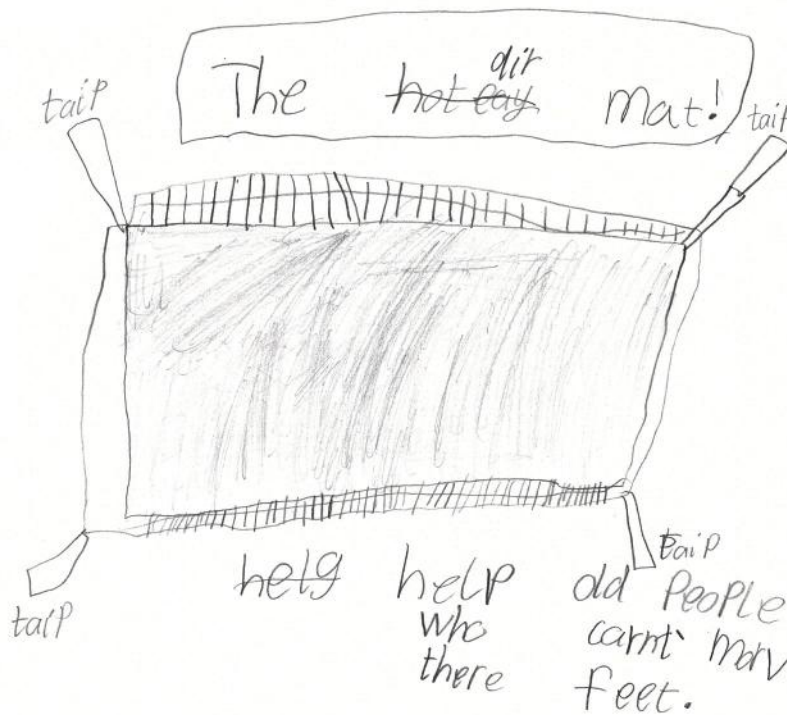 The hot eay air mat!
taip
taip
taip
taip
helg help old People
who carnt morv
there feet.